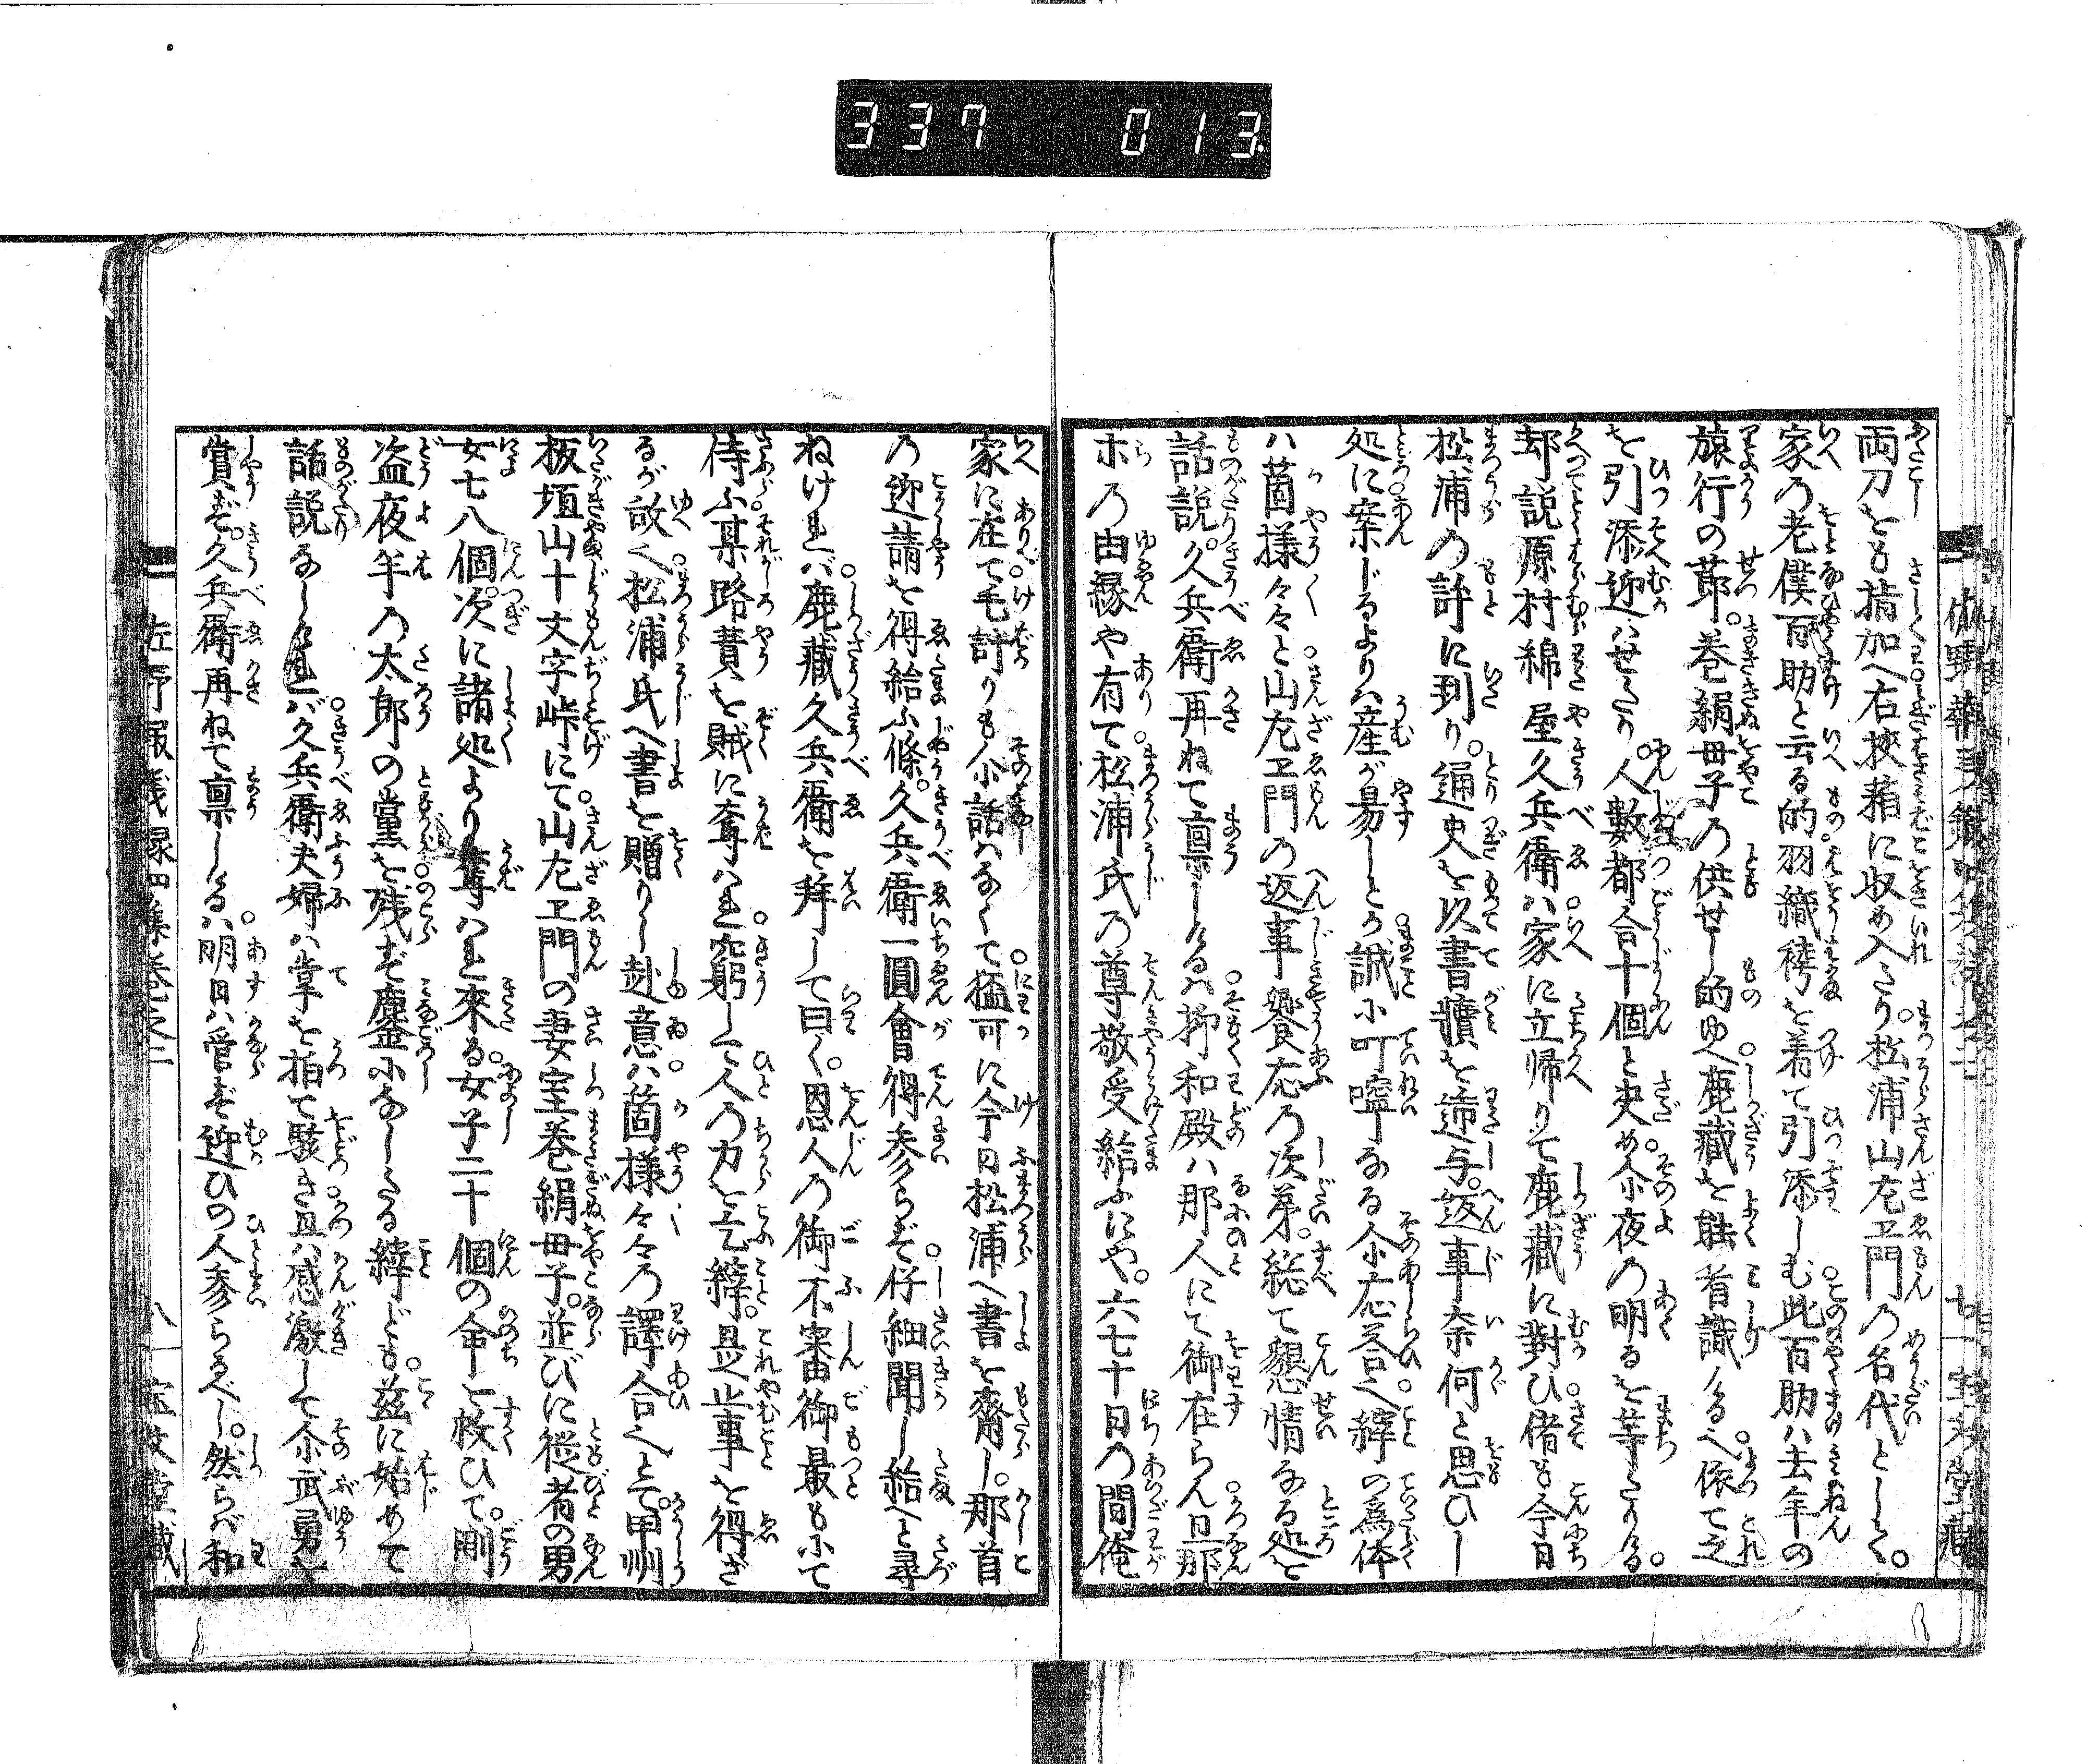 337 013
両刀をも指加へ右挾箱に収め入たり。松浦山左エ門の名代として。
家の老僕百助と云る的羽織袴を着て引添しむ此百助ハ去年の
旅行の節。巻絹母子の供せし的ゆへ鹿蔵を能首識ゐるへ依て之
を引添迎ハせたり。人数都合十個と定め尒夜の明るを等たりける。
却説原村綿屋久兵衛ハ家に立帰りて鹿蔵に對ひ偖も今日
松浦の許に到り。通史を以書牘を逓与。返事奈何と思ひし
処に案じるよりハ産が昜しとか誠小叮嚀なる尒応荅へ縡の為体
ハ箇様々々と山左エ門の返事饗応の次第。総て懇情なる処を
話説。久兵衛再ねて稟しけるハ抑和殿ハ那人にて御在らん旦那
ホの由縁や有て松浦氏の尊敬受給ふにや。六七十日の間俺
家に在て毛計りも尒話ハなくて猛可に今日松浦へ書を齎し。那首
の迎請を得給ふ條。久兵衛一圓會得参らず仔細聞し給へと尋
ねけれバ鹿蔵久兵衛を拜して曰く。恩人の御不審御最もにて
侍ふ某路費を賊に奪ハれ窮して人の力を乞縡。是止事を得ざ
るが故へ松浦氏へ書を贈りし赴意ハ箇様々々の譯合へとて。甲州
板垣山十文字峠にて山左エ門の妻室巻絹母子。並びに従者の男
女七八個。次に諸処より奪ハれ來る女子二十個の命を救ひて。剛
盗夜半の太郎の黨を残ず鏖小なしたる縡ども。茲に始めて
話説なしけれバ久兵衛夫婦ハ掌を拍て駭き且ハ感激して尒武勇を
賞ず。久兵衛再ねて稟しるハ明日ハ管ず迎ひの人参らるべし。然らバ和
佐野報義録四集巻之二
八
宝文堂藏